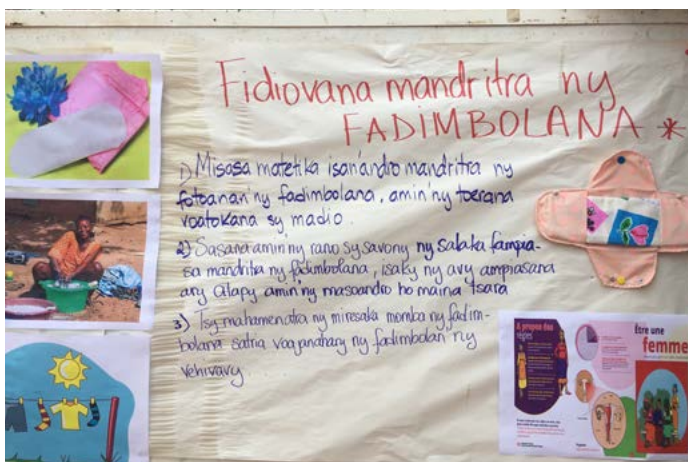 Fidiovana mandritra ny
FADIMBOLANA *
1) Misasa matetika isan'andro mandritra ny
fotoanan'ny fadimbolana, amin'ny toerana
voatokana sy madio.
2) Sasana amin'ny rano sy savony ny salaka fampia-
sa mandritra ny fadimbolana, isaky ny avy ampiasana
ary alapy amin'ny masoandro ho maina tsara
3) Tsy mahamenatra ny miresaka momba ny fadim-
bolana satria voajanahary ny fadimbolan'ny
vehivavy
A propos des
règles
Être une
femme